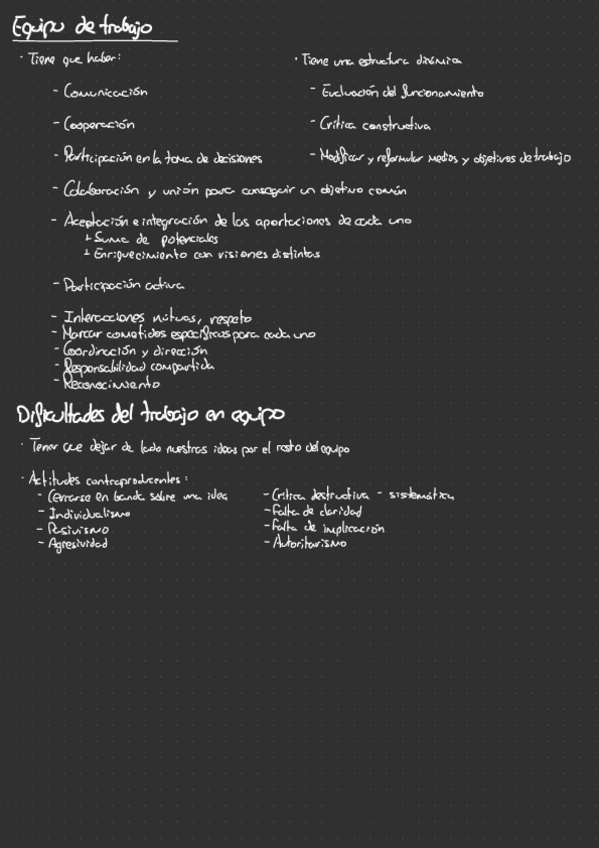 Equipo de trabajo
· Tiene que haber:
- Comunicación
- Cooperación
- Participación en la toma de decisiones
· Tiene una estructura dinámica
- Evaluación del funcionamiento
- Crítica constructiva
- Modificar y reformular medios y objetivos de trabajo
- Colaboración y unión para conseguir un objetivo común
- Aceptación e integración de las aportaciones de cada uno
+ Suma de potenciales
+ Enriquecimiento con visiones distintas
- Participación activa
- Interacciones mutuas, respeto
- Marcar cometidos específicos para cada uno
- Coordinación y dirección
- Responsabilidad compartida
- Reconocimiento
Dificultades del trabajo en equipo
· Tener que dejar de lado nuestras ideas por el resto del equipo
· Actitudes contraproducentes:
- Cerrarse en banda sobre una idea
- Individualismo
- Pasivismo
- Agresividad
- Crítica destructiva - sistemática
- Falta de claridad
- Falta de implicación
- Autoritarismo